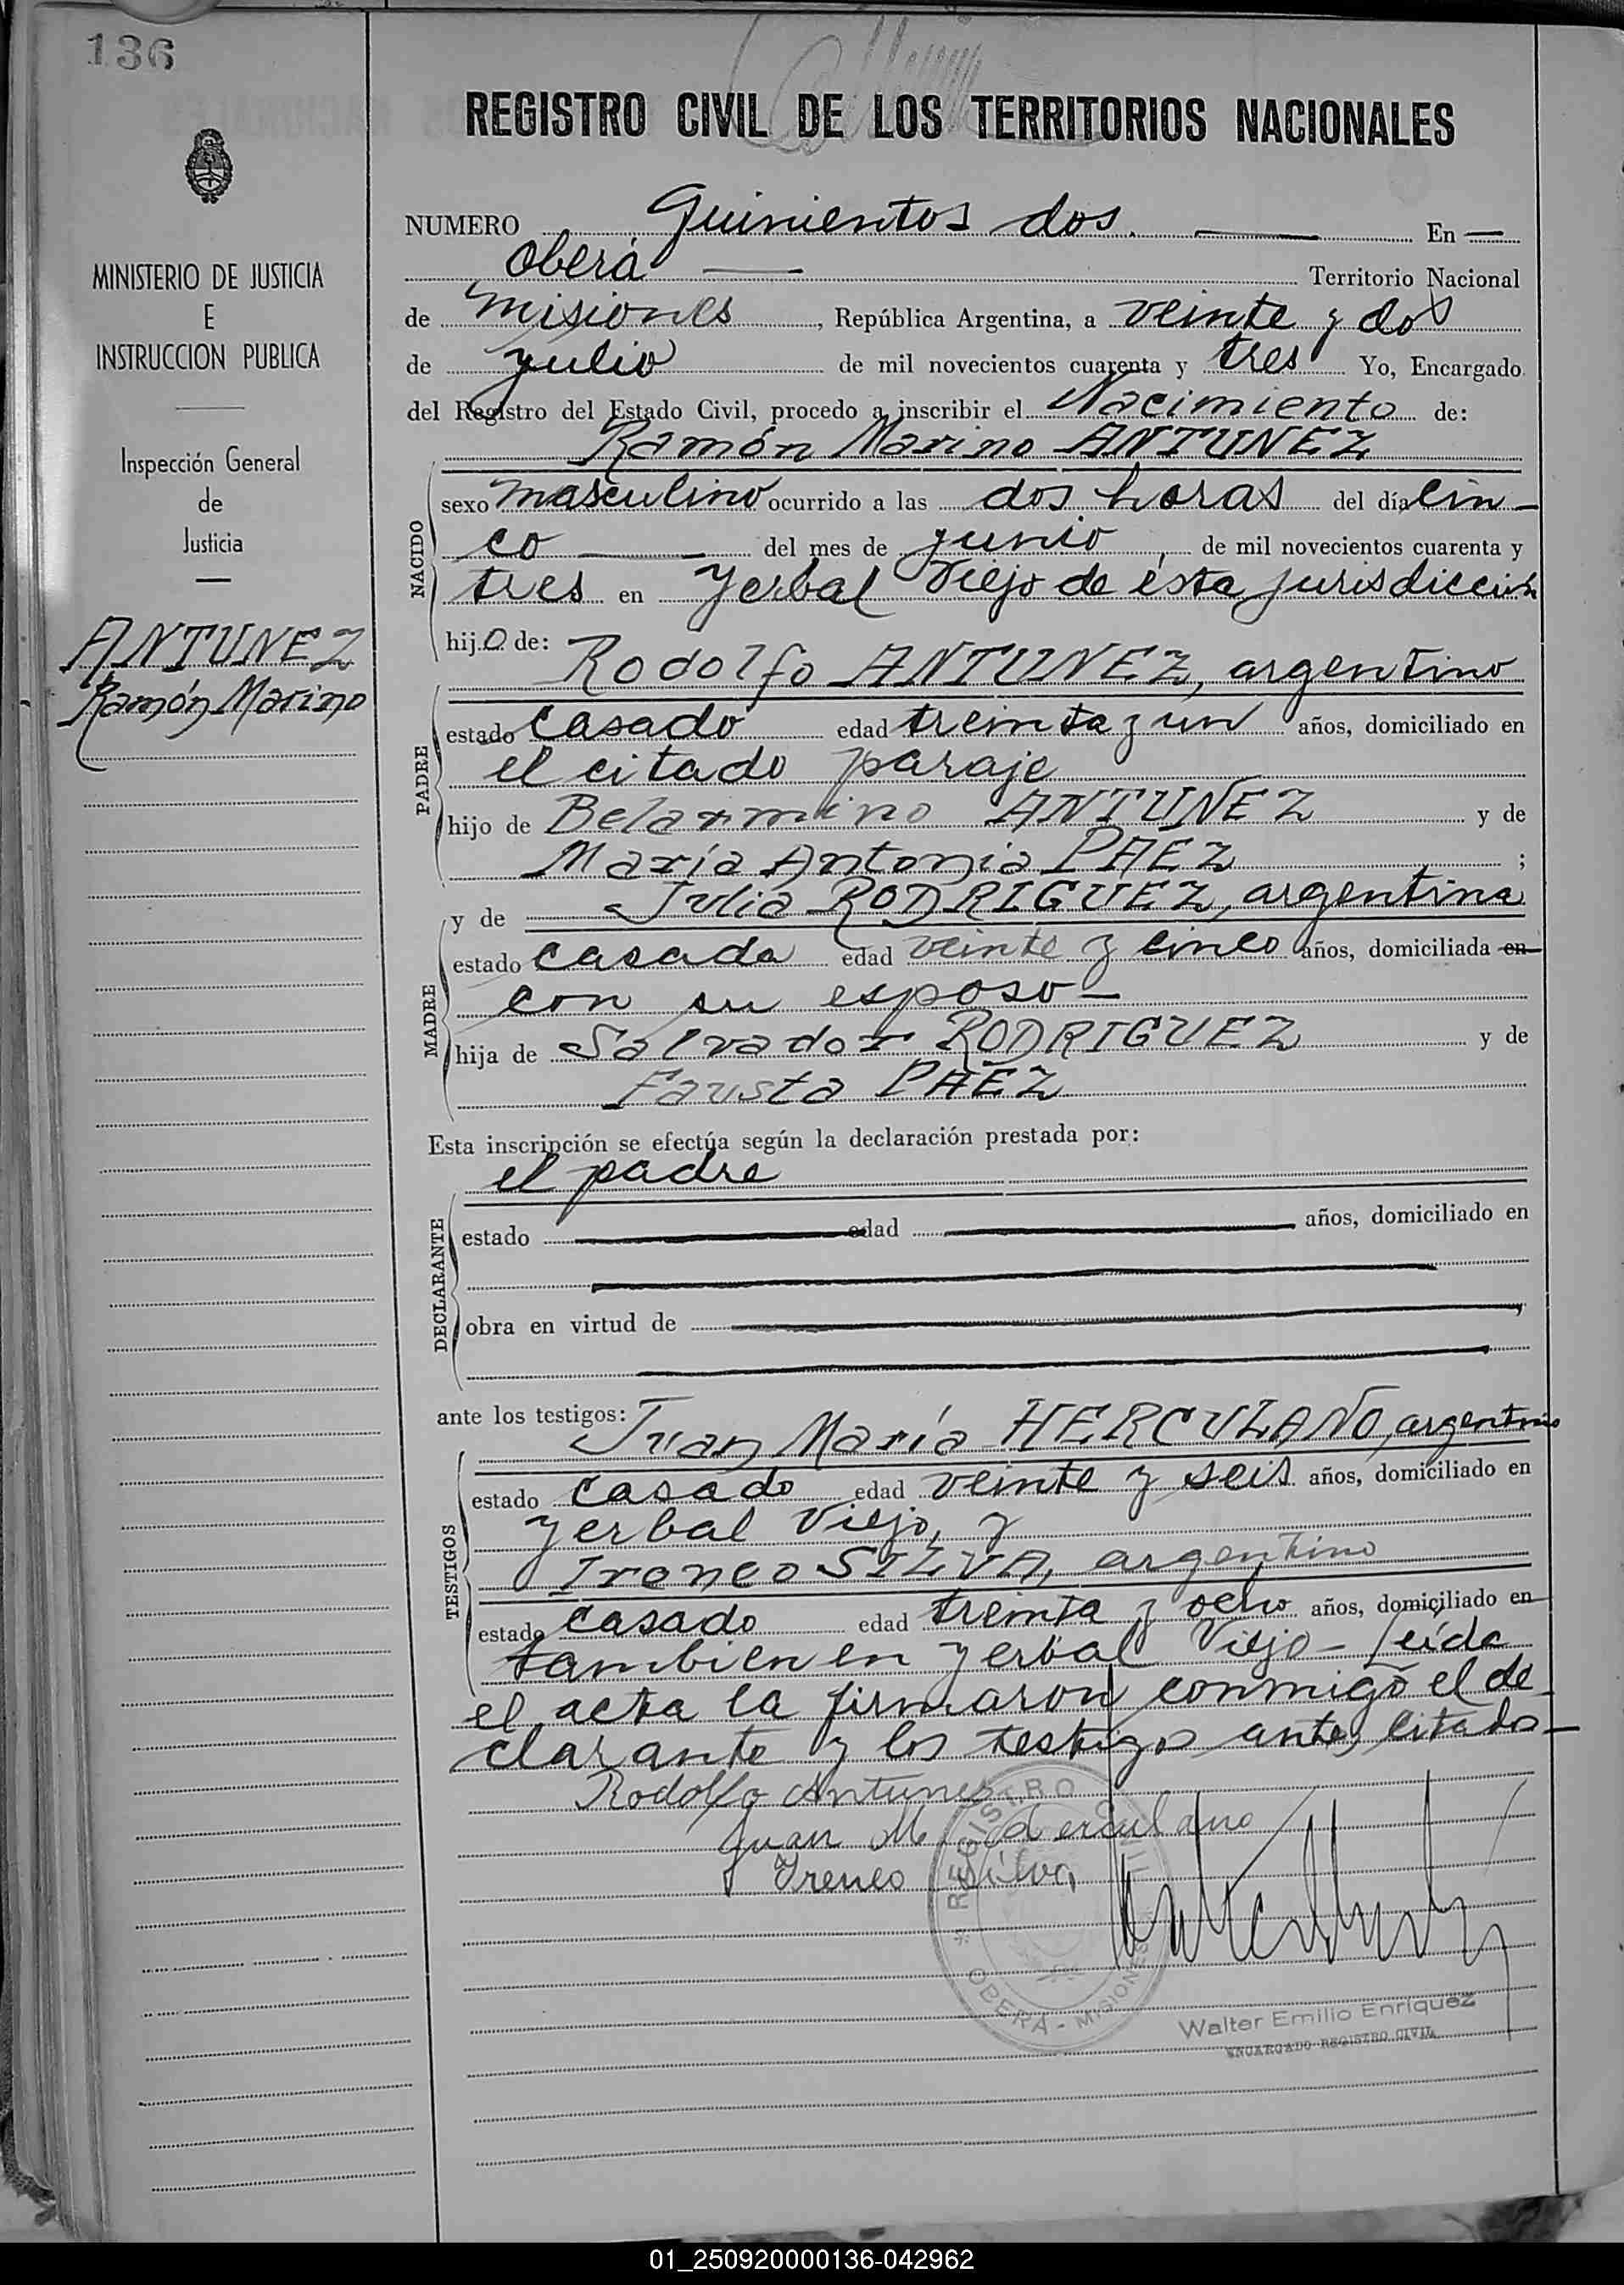 136
REGISTRO CIVIL DE LOS TERRITORIOS NACIONALES
MINISTERIO DE JUSTICIA
E
INSTRUCCION PUBLICA
Inspección General
de
Justicia
ANTUNEZ
Ramón Marino
NUMERO Quinientos dos. En
Oberá Territorio Nacional
de Misiones, República Argentina, a veinte y dos
de Julio de mil novecientos cuarenta y tres Yo, Encargado
del Registro del Estado Civil, procedo a inscribir el Nacimiento de:
Ramón Marino ANTUNEZ
NACIDO
sexo masculino ocurrido a las dos horas del día cin-
co del mes de junio, de mil novecientos cuarenta y
tres en Yerbal Viejo de ésta jurisdicción
hijo de:
Rodolfo ANTUNEZ, argentino
PADRE
estado casado edad treinta y un años, domiciliado en
el citado paraje
hijo de Belarmino ANTUNEZ y de
María Antonia PAEZ ;
y de Julia RODRIGUEZ, argentina
MADRE
estado casada edad veinte y cinco años, domiciliada en
con su esposo-
hija de Salvador RODRIGUEZ y de
Fausta PAEZ
Esta inscripción se efectúa según la declaración prestada por:
el padre
DECLARANTE
estado edad años, domiciliado en
obra en virtud de
ante los testigos:
Juan María HERCULANO, argentino
TESTIGOS
estado casado edad veinte y seis años, domiciliado en
Yerbal Viejo, y
Ireneo SILVA, argentino
estado casado edad treinta y ocho años, domiciliado en
tambien en Yerbal Viejo- Leída
el acta la firmaron conmigo el de-
clarante y los testigos antes citados-
Rodolfo Antunez
Juan M. Herculano
Ireneo Silva
REGISTRO
OBERÁ - MISIONES
Walter Emilio Enriquez
ENCARGADO REGISTRO CIVIL
01_250920000136-042962